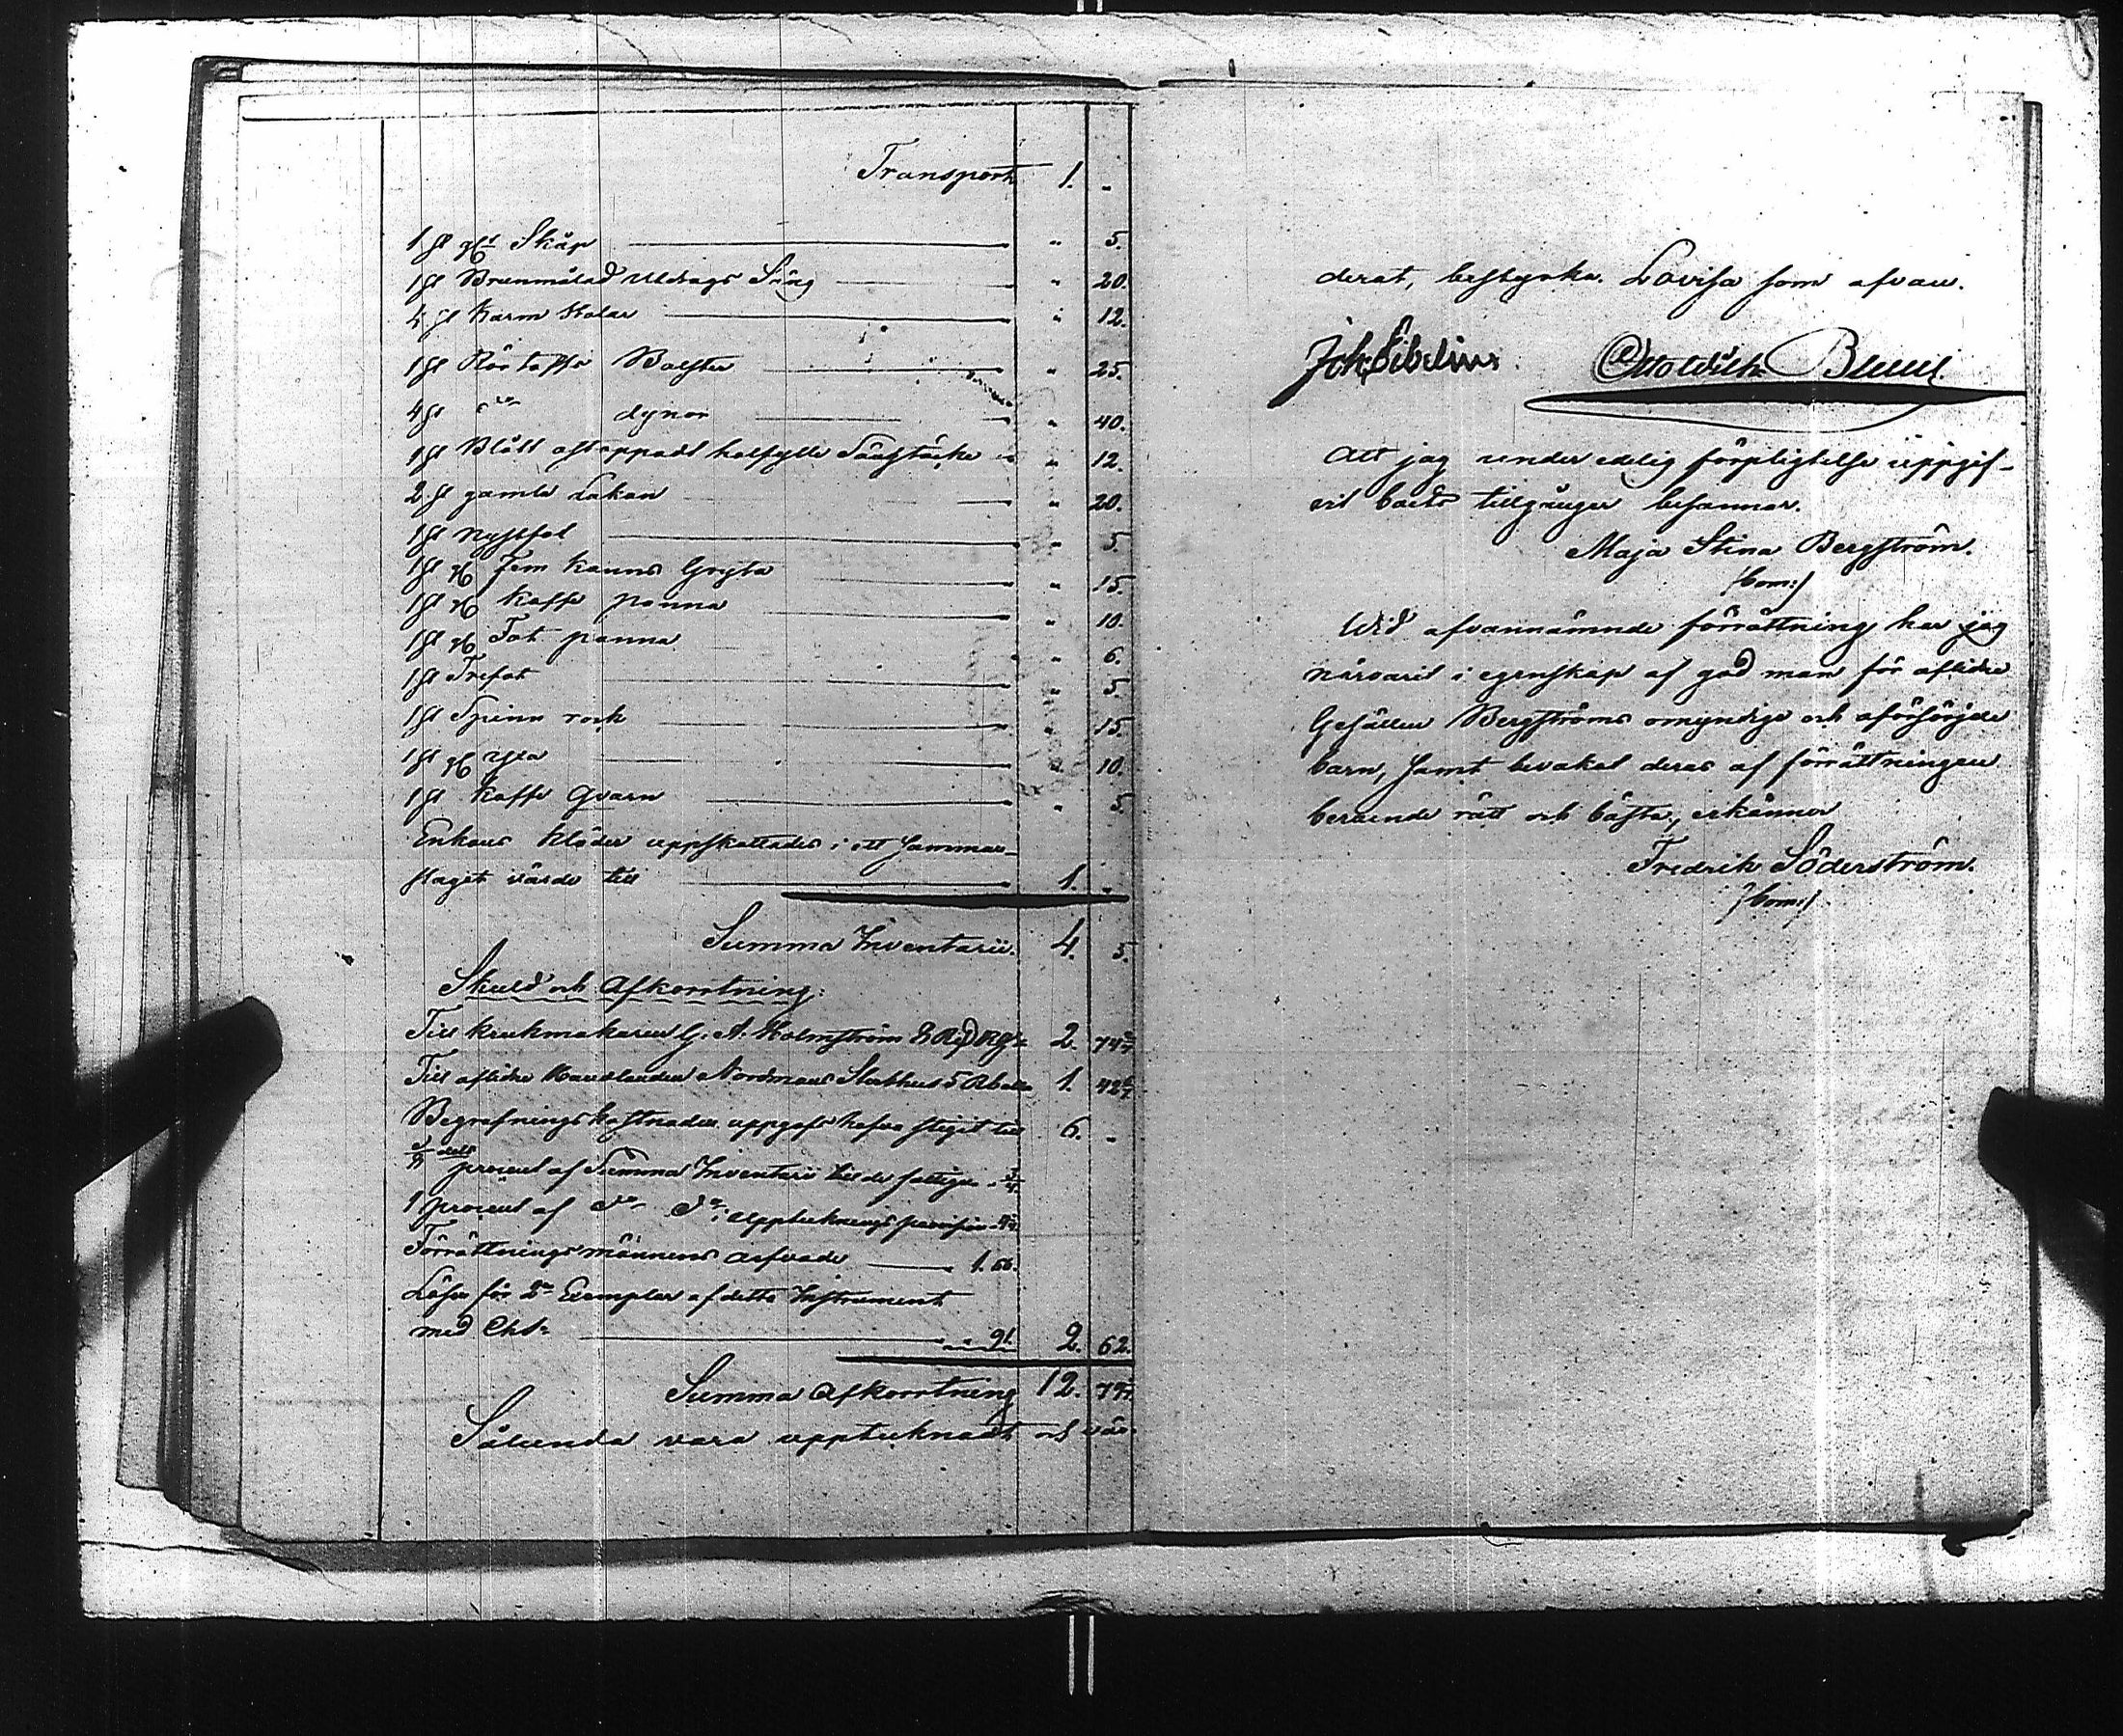 Transport 1. "
1 st gl Skåp " 5.
1 st Brunmålad Utdrags Säng " 20.
4 st Karm Stolar " 12.
1 st Bolster " 25.
4 st do dynor " 40.
1 st Blått halfylle Täcke " 12.
2 st gamla Lakan " 20.
1 st Nystfot " 5.
1 st gl Fem Kanns Gryta " 15.
1 st gl Kaffe panna " 10.
1 st gl Fot panna " 6.
1 st Trefot " 5.
1 st Spinn rock " 15.
1 st gl yxa " 10.
1 st Kaffe Qvarn " 5.
Enkans kläder uppskattades i ett samman-
slaget värde till 1. "
Summa Inventarii. 4. 5.
Skuld och Afkorrtning:
Till krukmakaren G. A. Holmström 2.
Till aflidne Handlanden Nordmans Sterbhus 5 1.
Begrafnings kostnaden uppgafs hafva stigit till 6. "
procent af Summa Inventarii till de fattiga
1 procent af do do i Upptecknings
Förrättnings männens arfvode 1.
Lösen för 2ne Exemplar af detta Instrument
med Cht. " 91. 2. 62.
Summa Afkorrtning 12.
Sålunda vara upptecknadt och vär-
derat, bestyrka. Lovisa som ofvan.
Joh Sibelius. Otto Wilh.
Att jag under edelig förpligtelse uppgif-
vit boets tillgångar besannar.
Maja Stina Bergström.
/bom:/
Wid ofvannämnde förrättning har jag
närvarit i egenskap af god man för aflidne
Gesällen Bergströms omyndige och oförsörjde
barn, samt bevakat deras af förrättningen
beroende rätt och bästa, erkänner
Fredrik Söderström.
/bom:/